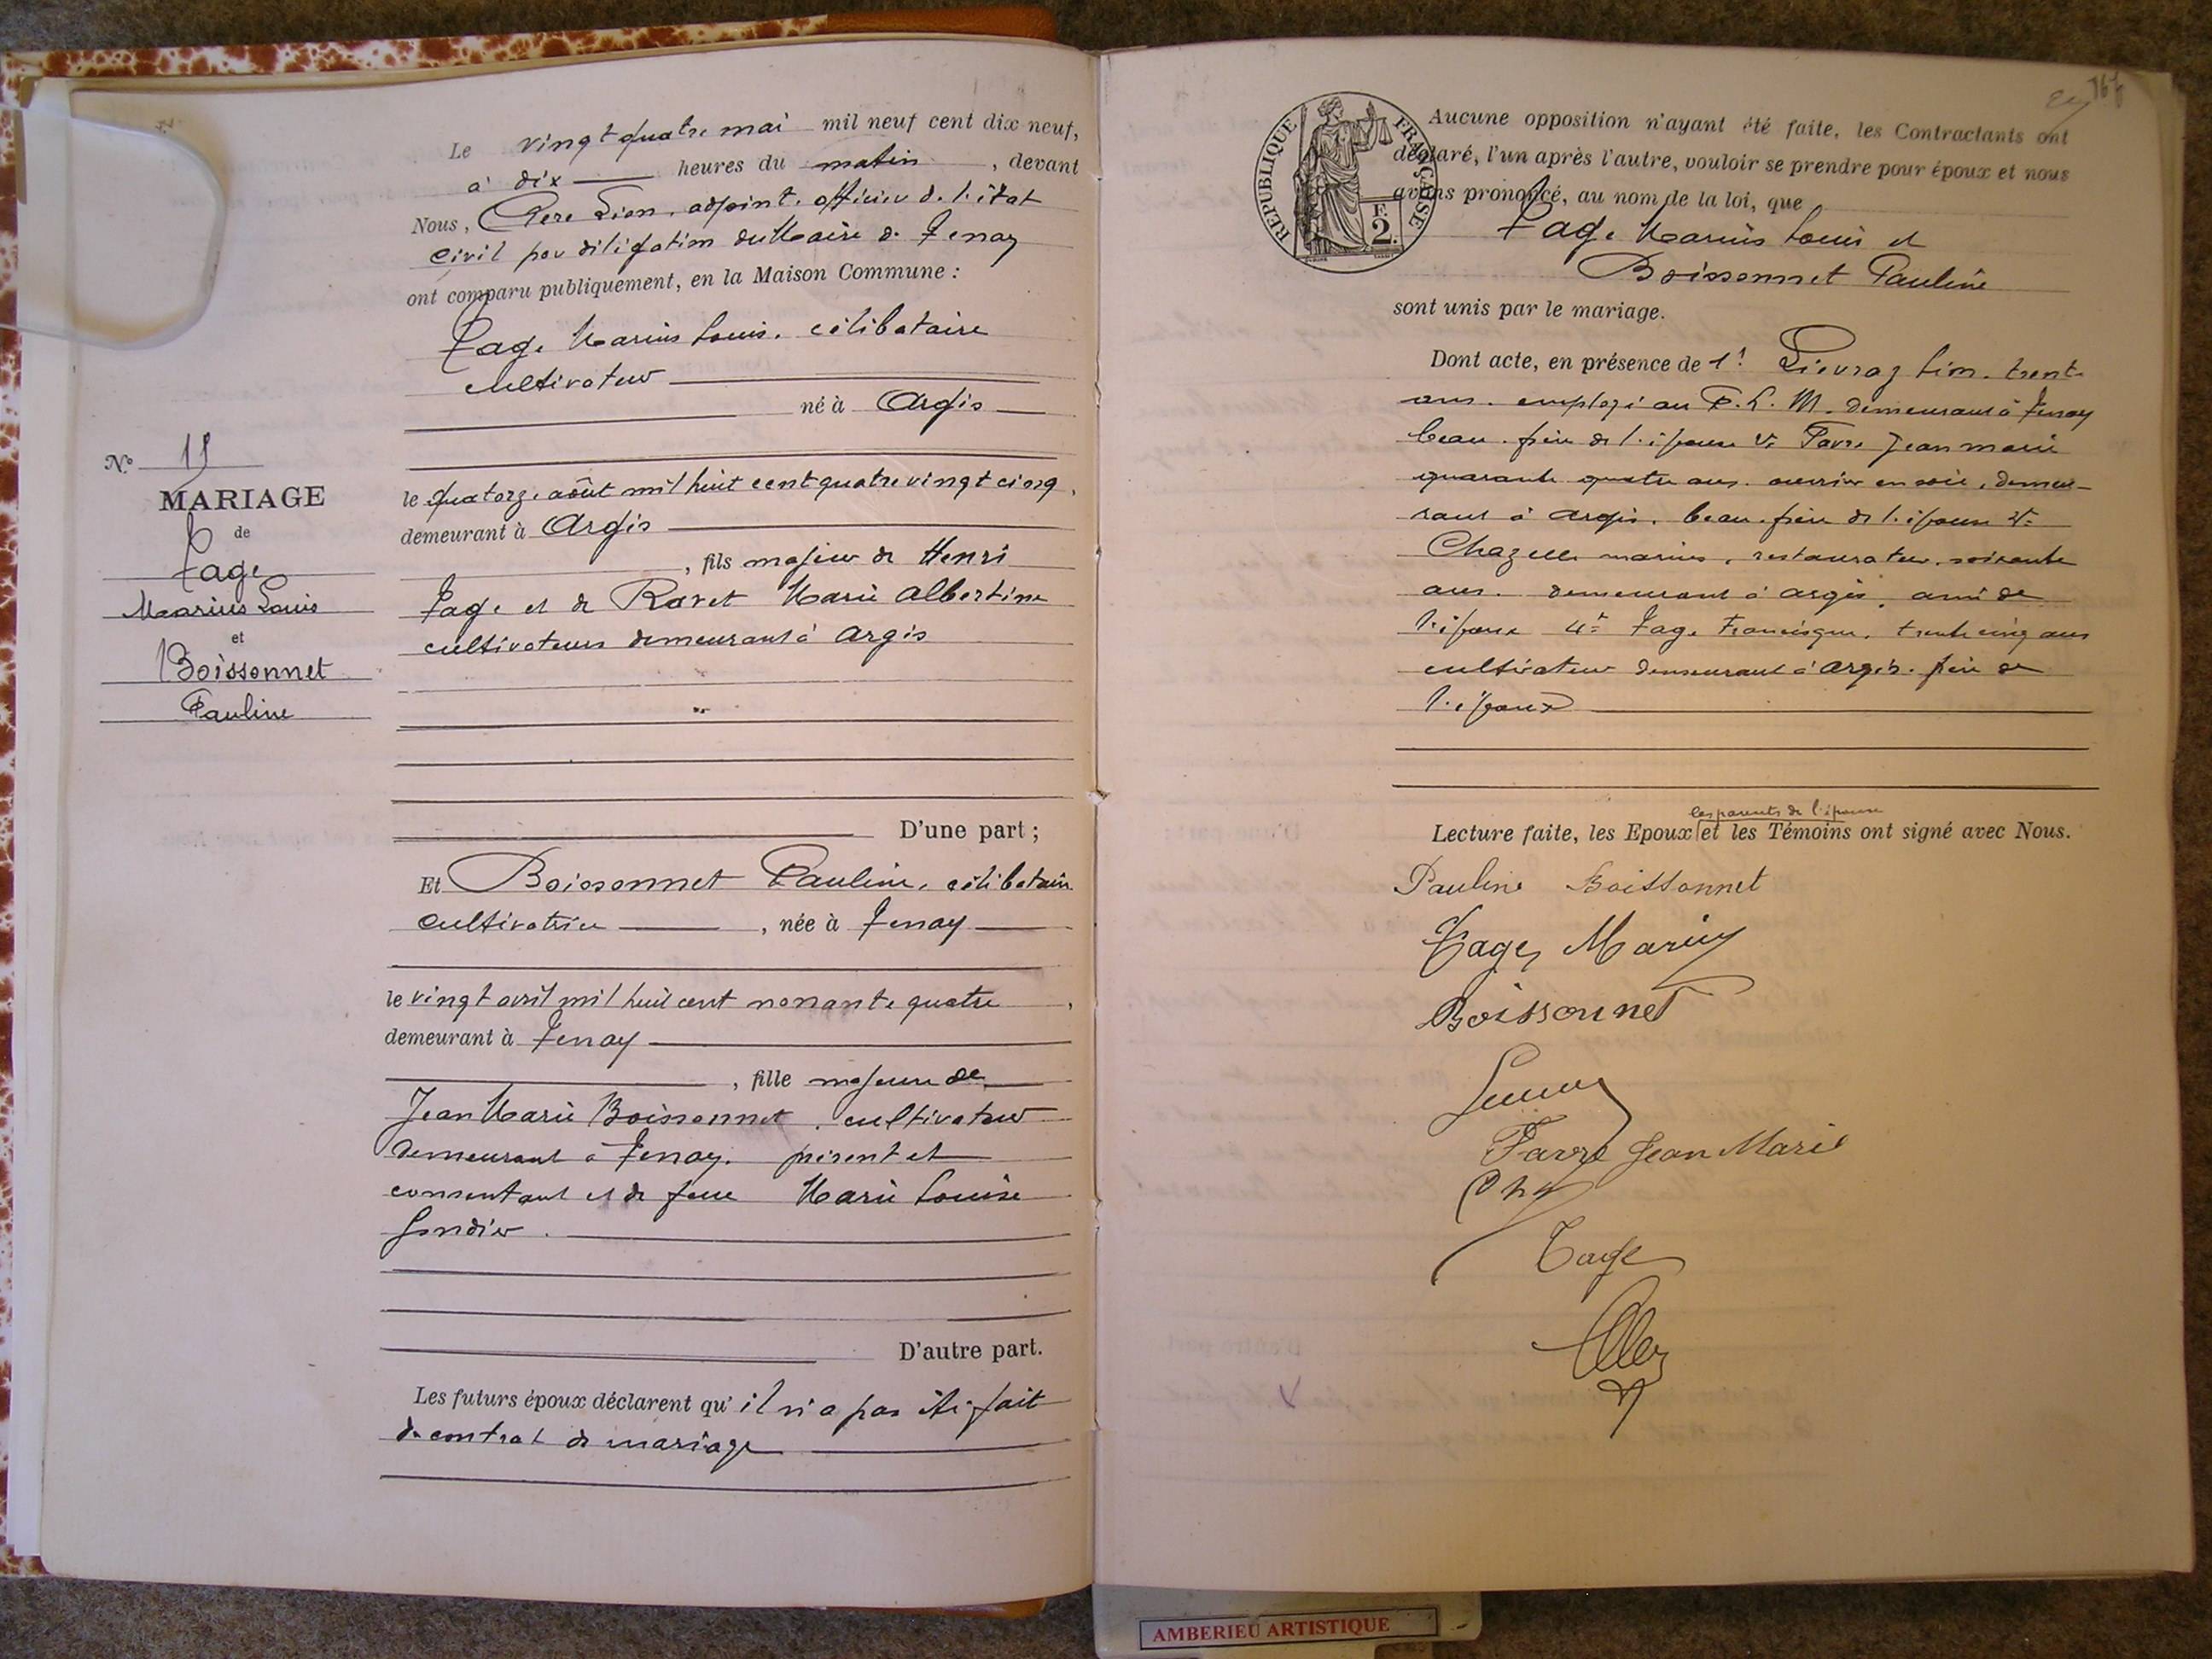 Le vingt quatre mai mil neuf cent dix neuf,
à dix heures du matin, devant
Nous, adjoint officier de l'état
civil par délégation du Maire de Tenay
ont comparu publiquement, en la Maison Commune :
Page Marius Louis, célibataire
cultivateur
né à Argis
le quatorze août mil huit cent quatre vingt cinq,
demeurant à Argis
, fils majeur de Henri
et de Ravet Marie Albertine
cultivateurs demeurant à Argis
D'une part ;
Et Boissonnet Pauline, célibataire
cultivatrice, née à Tenay
le vingt avril mil huit cent nonante quatre,
demeurant à Tenay
, fille majeure de
Jean Marie Boissonnet, cultivateur
demeurant à Tenay, présent et
consentant et de feue Marie Louise
D'autre part.
Les futurs époux déclarent qu'il n'a pas été fait
de contrat de mariage
Nº
MARIAGE
de
Marius Louis
et
Boissonnet
Pauline
RÉPUBLIQUE FRANÇAISE
F
2.
Aucune opposition n'ayant été faite, les Contractants ont
déclaré, l'un après l'autre, vouloir se prendre pour époux et nous
avons prononcé, au nom de la loi, que
Marius Louis et
Boissonnet Pauline
sont unis par le mariage.
Dont acte, en présence de 1º Léon, trente
ans, employé au P.L.M. demeurant à Tenay
beau-frère de l'épouse 2º Favre Jean Marie
quarante quatre ans, ouvrier en soie, demeu-
rant à Argis, beau-frère de l'épouse 3º
Chazelle Marius, restaurateur, soixante
ans, demeurant à Argis, ami de
l'époux 4º Francisque, trente cinq ans
cultivateur demeurant à Argis, frère de
l'époux
les parents de l'épouse
Lecture faite, les Epoux et les Témoins ont signé avec Nous.
Pauline Boissonnet
Marius
Boissonnet
Favre Jean Marie
AMBERIEU ARTISTIQUE